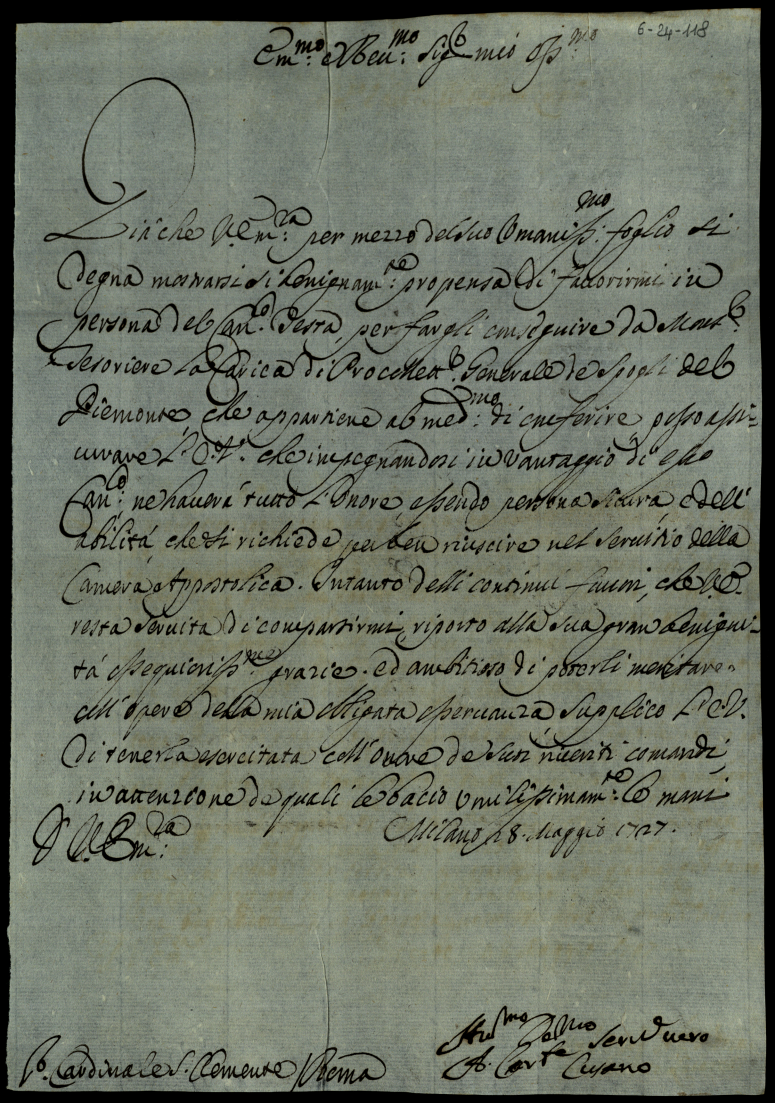 6-24-118
Em.mo e Reu.mo Sig.r mio Oss.mo
Giache V. Em.za per mezzo del suo Umaniss.mo foglio si
degna mostrarsi si benignam.te propensa di fauorirmi in
persona del Can.co Testa, per fargli conseguire da Mons.r
Tesoriere la Carica di Procollett.r Generale de Spogli del
Piemonte, che appartiene al med.mo di conferire, posso assi-
curare l'E.V. che impegnandosi in vantaggio di esso
Can.co ne hauerá tutto l'onore essendo persona sicura, e dell'
abilitá che si richiede per ben riuscire nel seruitio della
Camera Appostolica. Intanto delli continui fauori, che V.E.
resta seruita di compartirmi, riporto alla sua gran benigni-
tá ossequiosiss.me grazie. ed ambitioso di poterli meritare
coll'opere della mia obligata osseruanza supplico l'E.V.
di tenerla esercitata coll'onore de suoi riueriti comandi,
in attenzione de quali le bacio umilissimam.te le mani
D V. Em.za Milano 28. Maggio 1727.
Hu.mo De.mo Seru.e uero
A. Conte Cusano
S.r Cardinale S. Clemente Roma